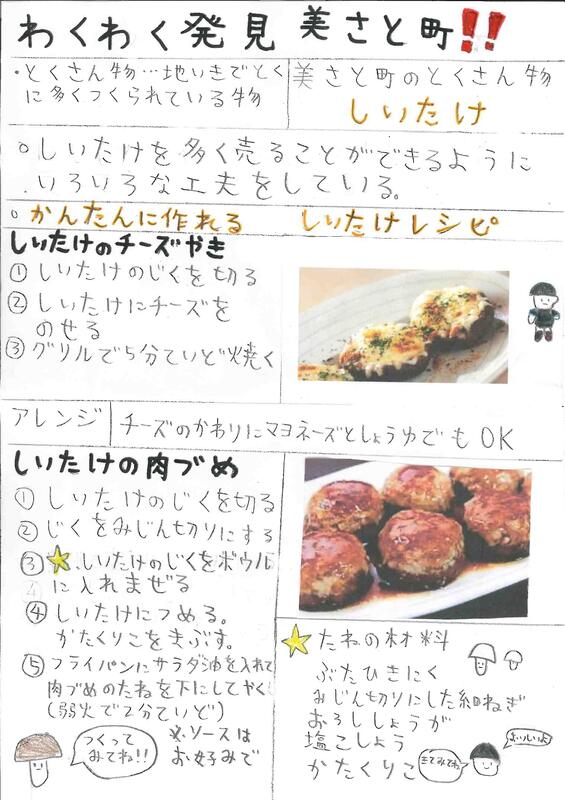 わくわく発見 美さと町!!
・とくさん物…地いきでとく
に多くつくられている物
美さと町のとくさん物
しいたけ
○しいたけを多く売ることができるように
いろいろな工夫をしている。
○かんたんに作れる しいたけレシピ
しいたけのチーズやき
①しいたけのじくを切る
②しいたけにチーズを
のせる
③グリルで5分ていど焼く
アレンジ
チーズのかわりにマヨネーズとしょうゆでもOK
しいたけの肉づめ
①しいたけのじくを切る
②じくをみじん切りにする
③★.しいたけのじくをボウル
に入れまぜる
④しいたけにつめる。
かたくりこをまぶす。
⑤フライパンにサラダ油を入れて
肉づめのたねを下にしてやく
(弱火で2分ていど)
つくって
みてね!!
※ソースは
お好みで
★たねの材料
ぶたひきにく
みじん切りにした細ねぎ
おろししょうが
塩こしょう
かたくりこ
きてみてね
おいしいよ